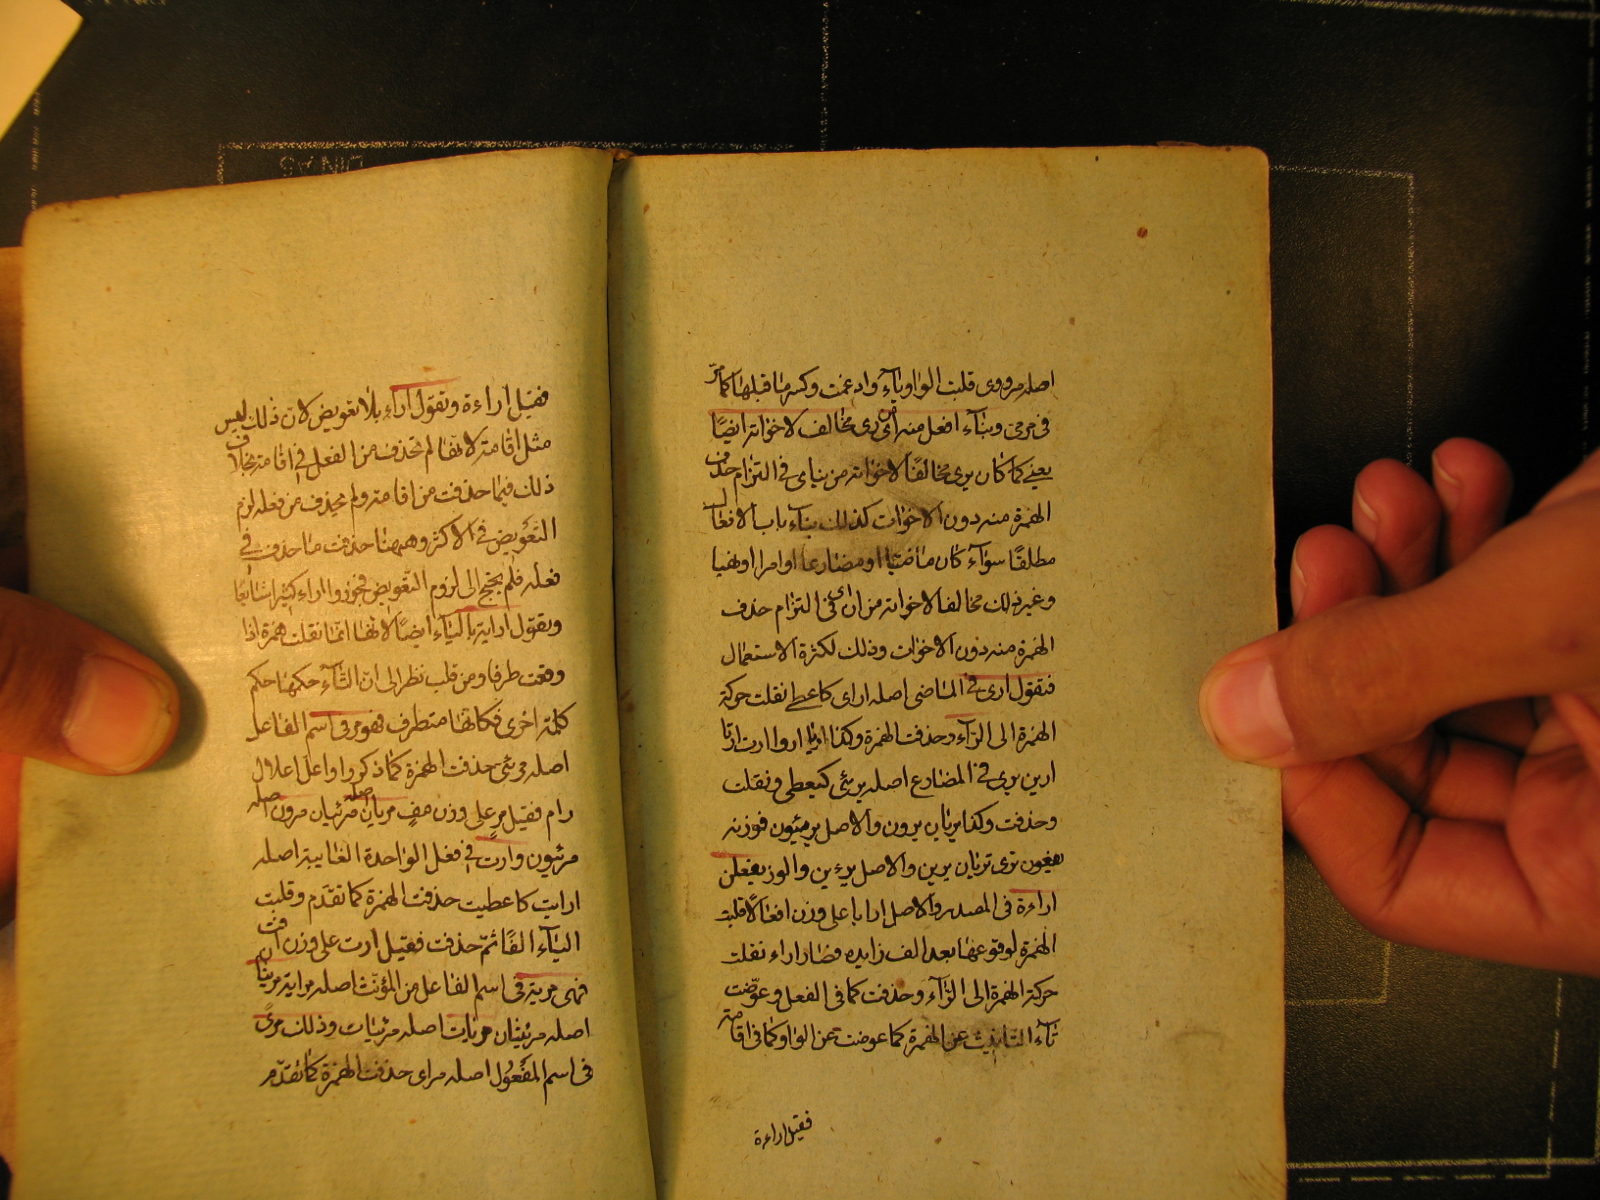 اصله مرووى قلبت الواو ياء وادغمت وكسر ما قبلها كما مر
فى مرمى وبناء افعل منه اى من رى مخالف لاخواته ايضًا
يعنى كما كان يرى مخالفًا لاخواته من يناى فى التزام حذف
الهمزة منه دون الاخوات كذلك بناء باب الافعال
مطلقًا سواء كان ماضيا او مضارعا او امرا او نهيا
وغير ذلك مخالفا لاخواته من اناى فى التزام حذف
الهمزة منه دون الاخوات وذلك لكثرة الاستعمال
فتقول ارى فى الماضى اصله اراى كاعطى نقلت حركة
الهمزة الى الراء وحذفت الهمزة وكذا اريا اروا ارت ارتا
ارين يرى فى المضارع اصله يرئى كيعطى ونقلت
وحذفت وكذا يريان يرون والاصل يرئيون فوزنه
يفعون ترى تريان يرين والاصل يرءين والوزن يفعلن
اراءة فى المصدر والاصل ارايا على وزن افعالًا قلبت
الهمزة لوقوعها بعد الف زايده فصار اراء نقلت
حركة الهمزة الى الراء وحذفت كما فى الفعل وعوّضت
تاء التانيث عن الهمزة كما عوضت عن الواو كما فى اقامة
فقيل اراءة
فقيل اراءة وتقول اراء بلا تعويض لان ذلك ليس
مثل اقامة لانها لم تحذف من الفعل فى اقامة بخلاف
ذلك فيما حذفت من اقامة ولم يحذف من فعله لزم
التعويض فى الاكثر وههنا حذفت ما حذف فى
فعله فلم يحتج الى لزوم التعويض فجوزوا اراء كثيرا شائعًا
وتقول اراية بالياء ايضًا لانها انما نقلت همزة اذا
وقعت طرفا ومن قلب نظر الى ان التاء حكمها حكم
كلمة اخرى فكانها متطرف فهو مر فى اسم الفاعل
اصله مرئى حذفت الهمزة كما ذكر واعل اعلال
رام فقيل مر على وزن مف مريان اصله مرئيان مرون اصله
مرئيون وارت فى فعل الواحدة الغايبة اصله
ارايت كاعطيت حذفت الهمزة كما تقدم وقلبت
الياء الفًا ثم حذفت فقيل ارت على وزن افت
فهى مرية فى اسم الفاعل من المؤنث اصله مراية مريتان
اصله مرئيتان مريات اصله مرئيات وذلك مرًى
فى اسم المفعول اصله مراى حذفت الهمزة كما تقدّم